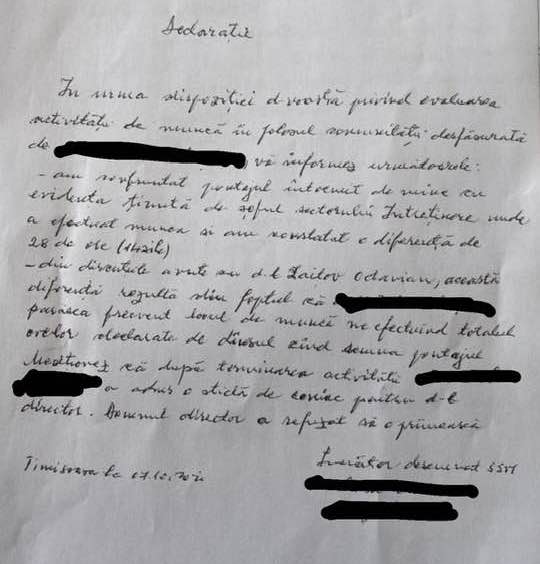 Declarație
În urma dispoziției d-voastră privind evaluarea
activității de muncă în folosul comunității desfășurată
de vă informez următoarele:
- am confruntat pontajul întocmit de mine cu
evidența ținută de șeful sectorului Întreținere unde
a efectuat munca și am constatat o diferență de
28 de ore (14 zile)
- din discuțiile avute cu d-l Zaitov Octavian, această
diferență rezultă din faptul că
părăsea frecvent locul de muncă ne efectuînd totalul
orelor declarate de dînsul cînd semna pontajul
Menționez că după terminarea activității
a adus o sticlă de coniac pentru d-l
director. Domnul director a refuzat să o primească
Timișoara la 07.10.2021
Lucrător desemnat SSM